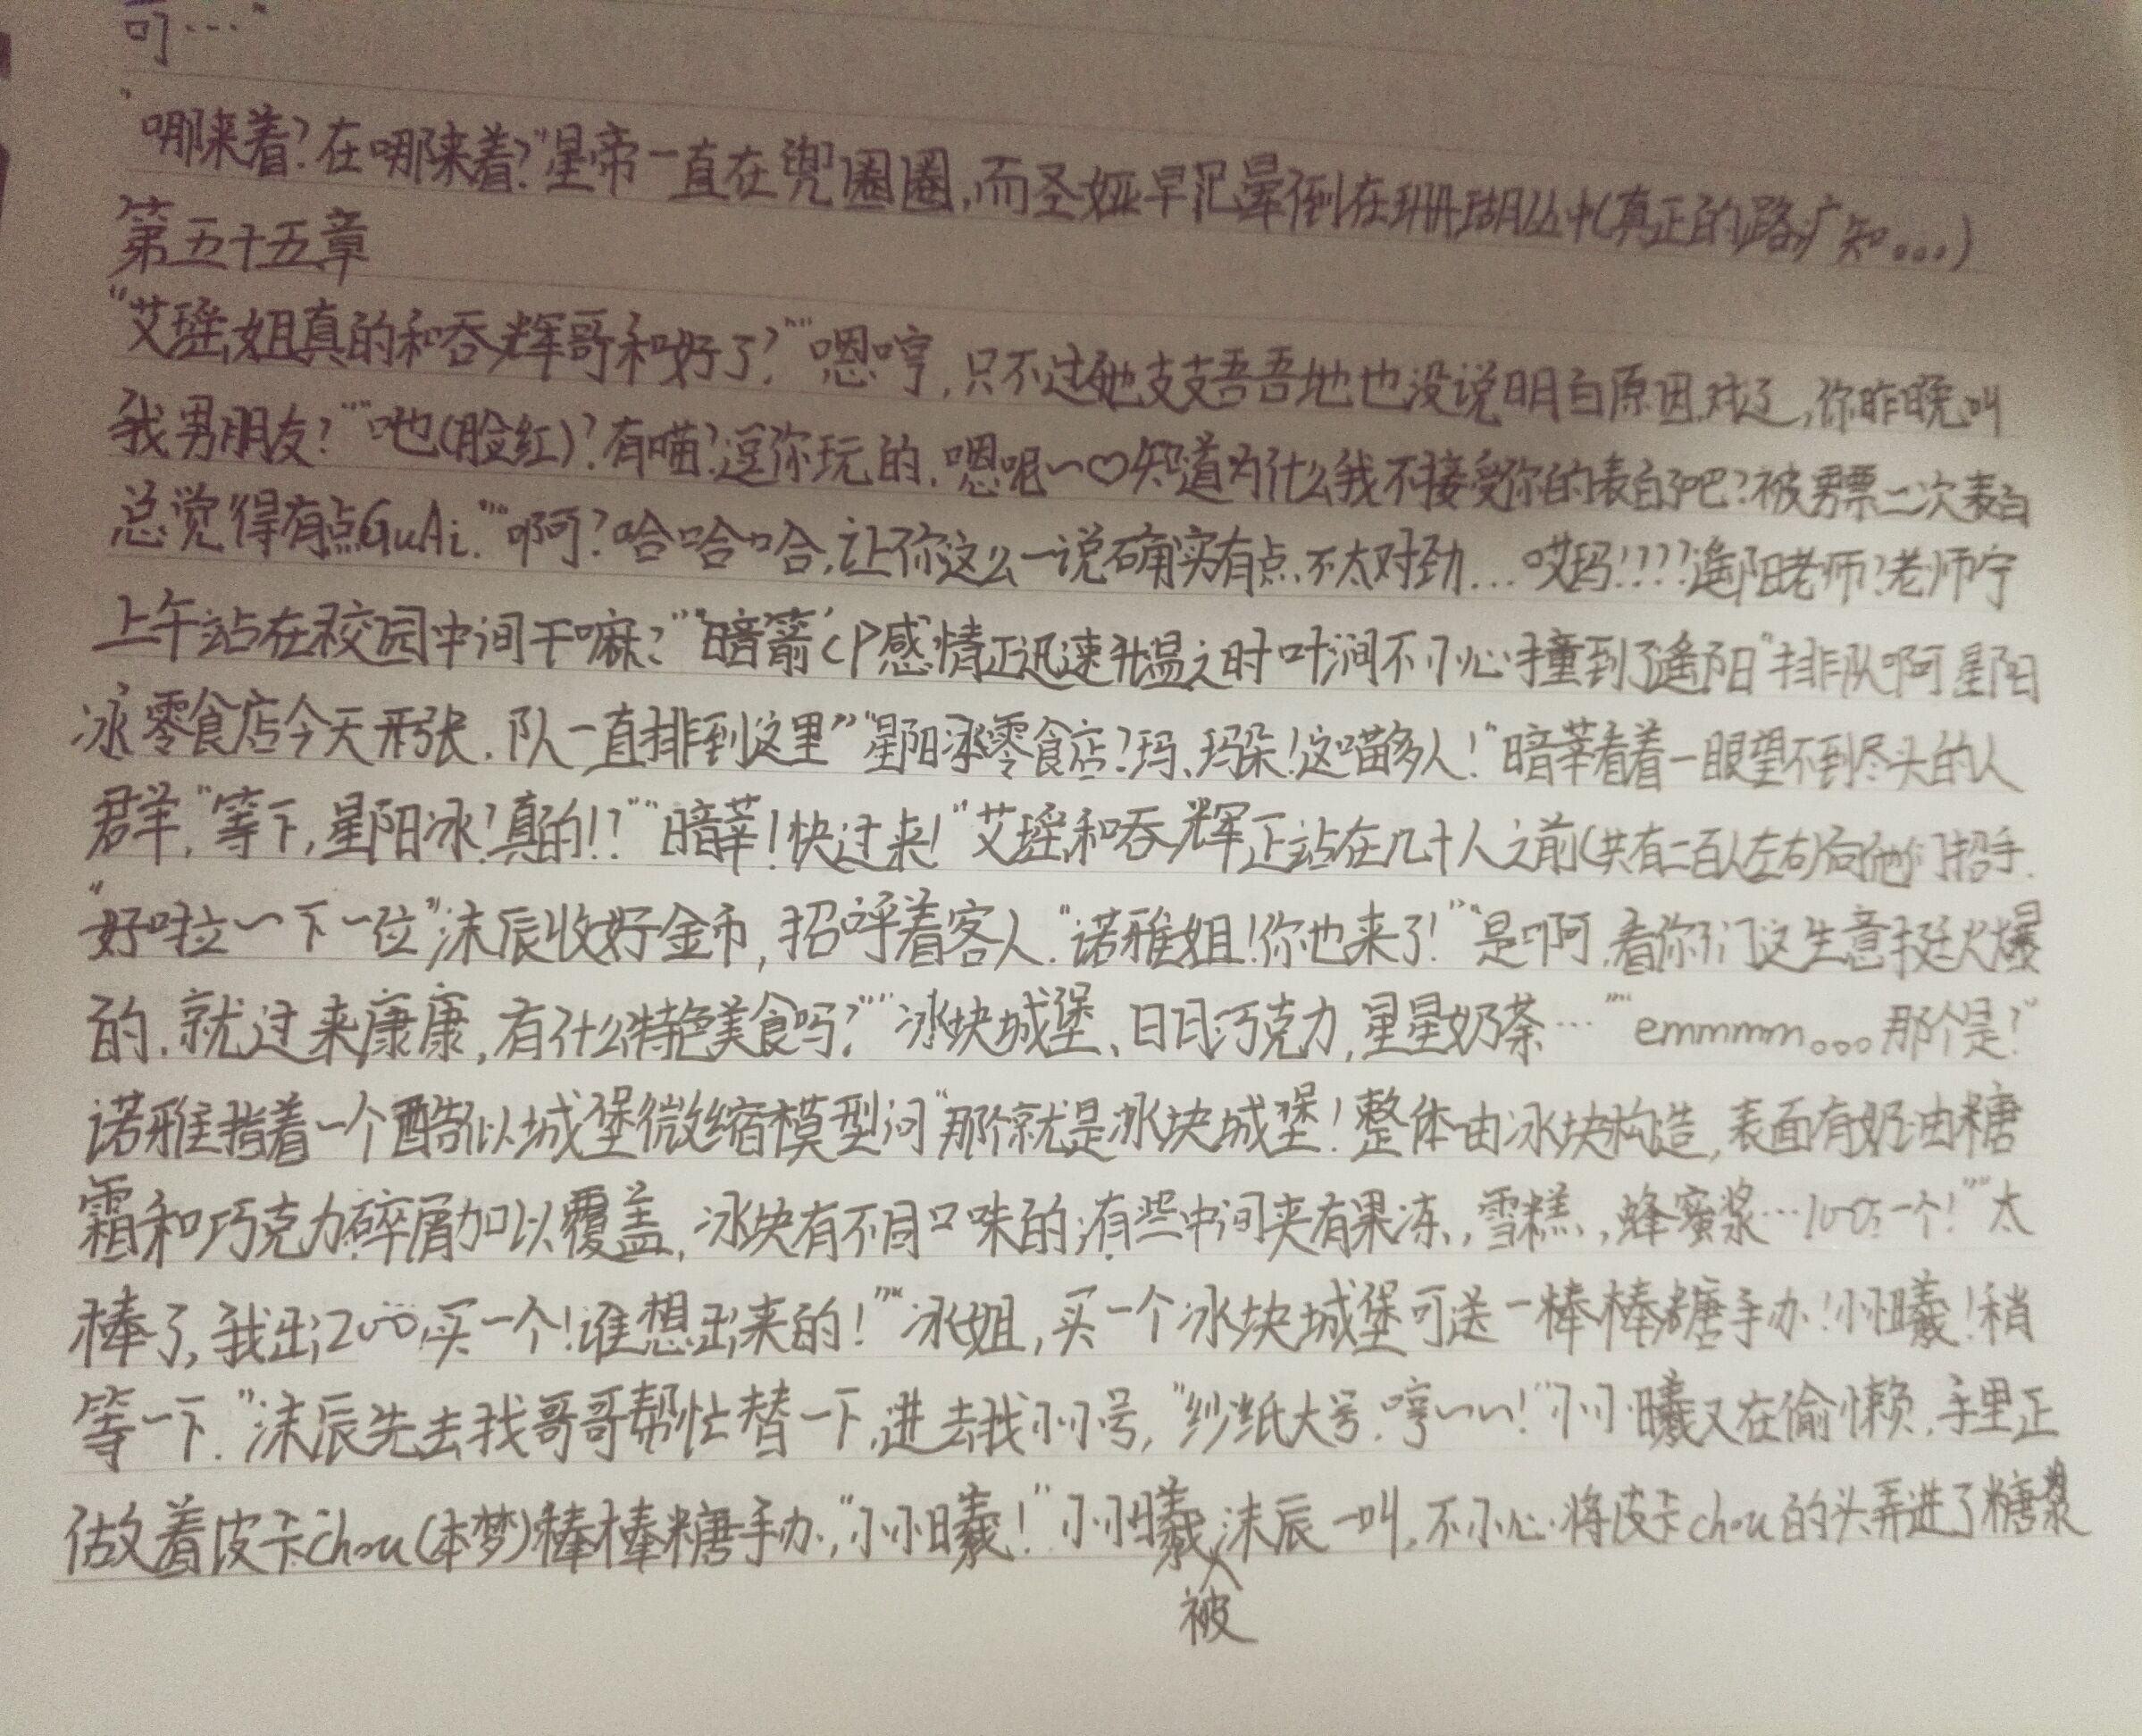 可…"
"哪来着?在哪来着?"星帝一直在兜圈圈,而圣娅早已晕倒在珊瑚丛中(真正的路痴…)
第五十五章
"艾瑶姐真的和吞辉哥和好了?""嗯哼,只不过她支支吾吾地也没说明白原因.对了,你昨晚叫
我男朋友?""吔(脸红)?有喵?逗你玩的.嗯呢~♡知道为什么我不接受你的表白了吧?被男票二次表白
总觉得有点GuAi.""啊?哈哈哈,让你这么一说确实有点不太对劲…哎玛!???遥阳老师?老师
上午站在校园中间干嘛?""暗箭'CP感情正迅速升温之时叶涧不小心撞到了遥阳"排队啊星阳
冰零食店今天开张.队一直排到这里""星阳冰零食店?玛、玛朵!这喵多人!"暗莘看着一眼望不到尽头的人
群,"等下,星阳冰?真的!?""暗莘!快过来!"艾瑶和吞辉正站在几十人之前(共有二百人左右)向他们招手.
"好啦~下一位"沫辰收好金币,招呼着客人."诺雅姐!你也来了!""是啊,看你们这生意挺火爆
的.就过来康康,有什么特色美食吗?""冰块城堡、日月巧克力,星星奶茶…""emmmm。。。那个是?"
诺雅指着一个酷似城堡微缩模型问"那个就是冰块城堡!整体由冰块构造,表面有奶油糖
霜和巧克力碎屑加以覆盖,冰块有不同口味的;有些中间夹有果冻,雪糕,蜂蜜浆…100一个!""太
棒了,我出200买一个!谁想出来的!""冰姐,买一个冰块城堡可送一棒棒糖手办!小小曦!稍
等一下."沫辰先去找哥哥帮忙替一下,进去找小小号,"纱纸大号.哼~~!"小小曦又在偷懒,手里正
做着皮卡chou(本梦)棒棒糖手办,"小小曦!"小小曦被沫辰一叫,不小心将皮卡chou的头弄进了糖浆